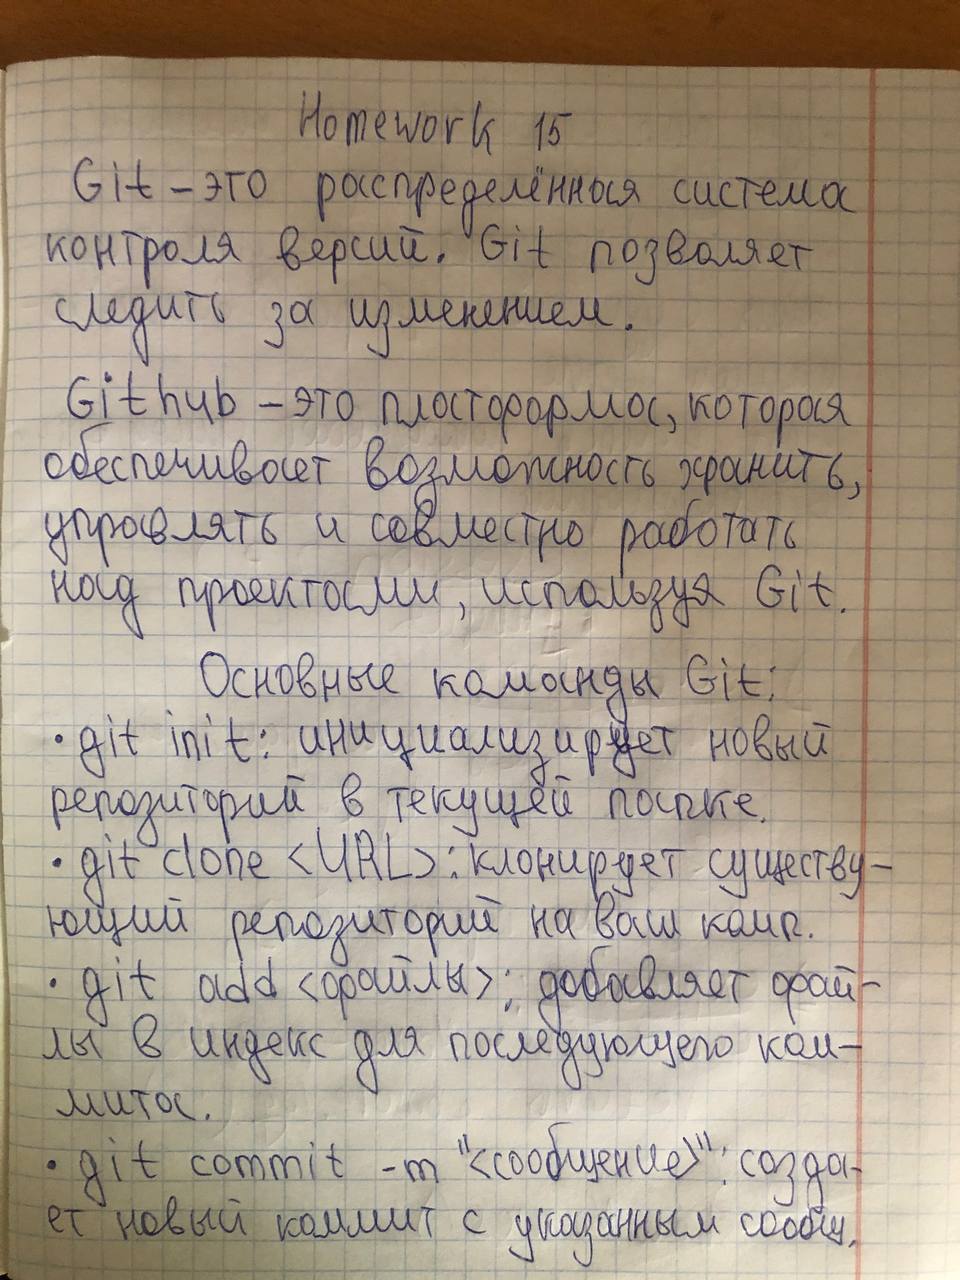 Homework 15
Git - это распределённая система
контроля версий. Git позволяет
следить за изменением.
Github - это платформа, которая
обеспечивает возможность хранить,
управлять и совместно работать
над проектами, используя Git.
Основные команды Git:
• git init: инициализирует новый
репозиторий в текущей папке.
• git clone <URL>: клонирует существу-
ющий репозиторий на ваш комп.
• git add <файлы>: добавляет фай-
лы в индекс для последующего ком-
мита.
• git commit -m "<сообщение>": созда-
ет новый коммит с указанным сообщ.